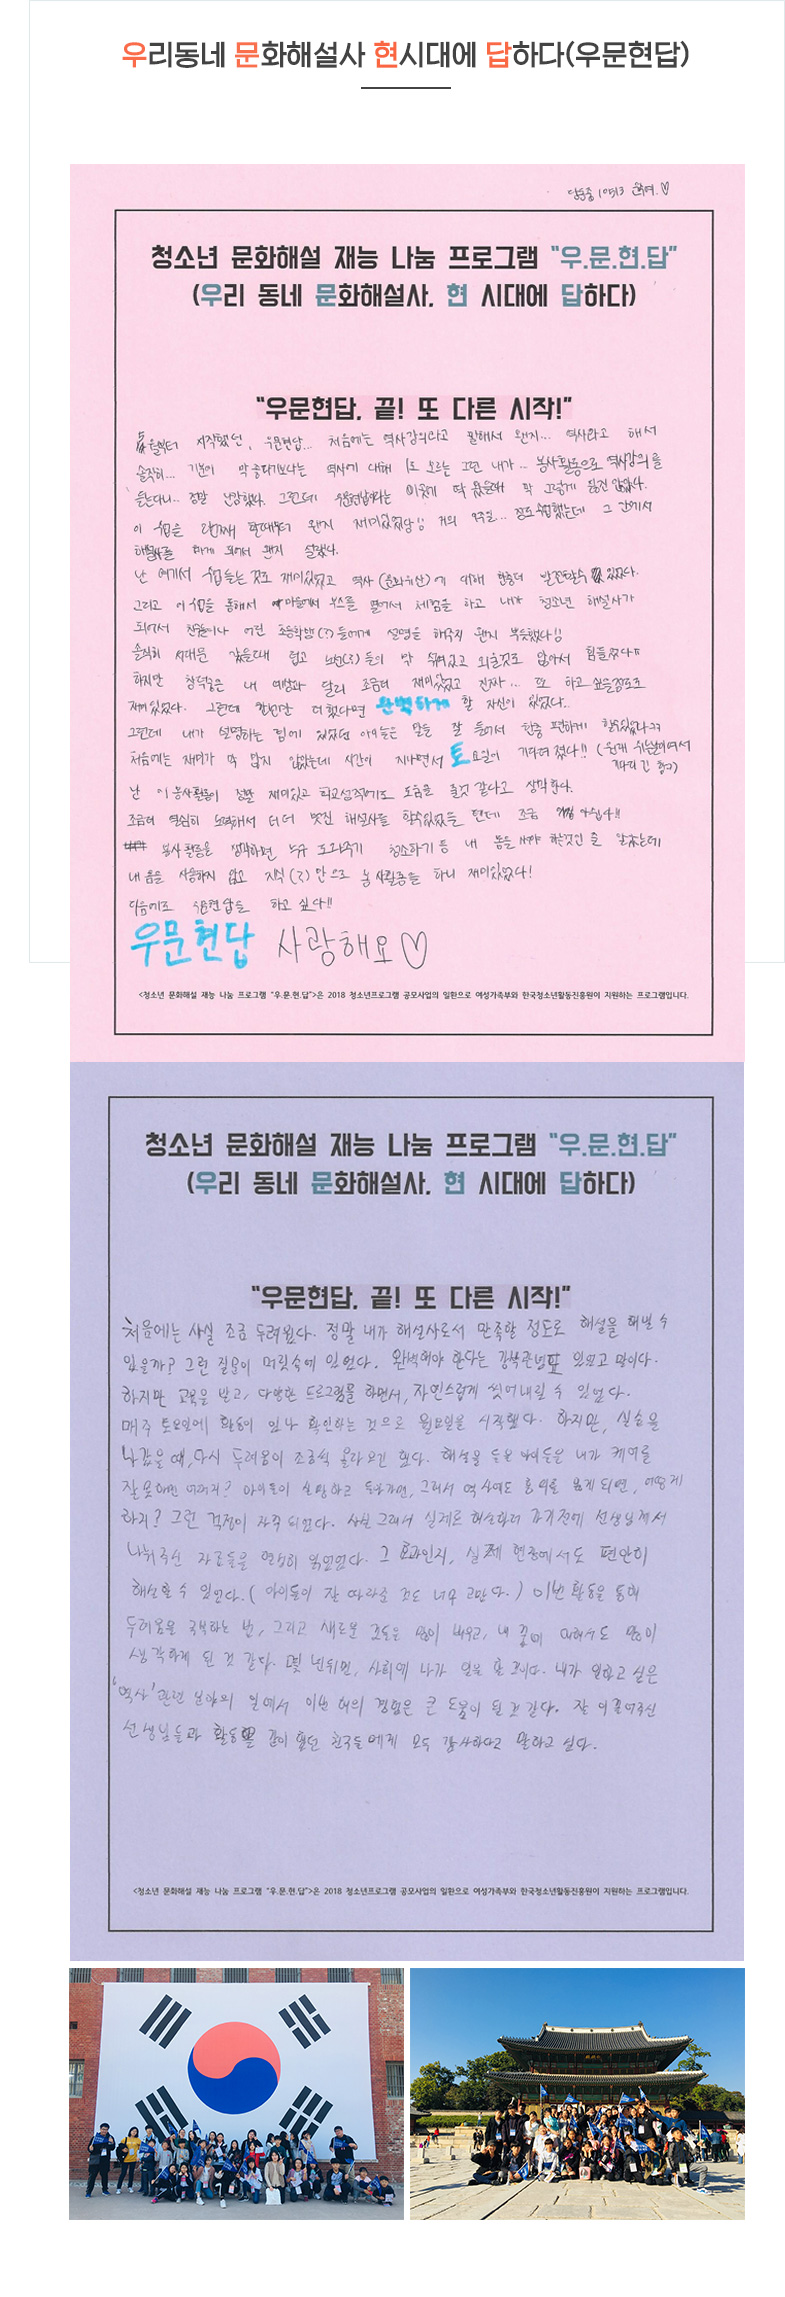 우리동네 문화해설사 현시대에 답하다(우문현답)
청소년 문화해설 재능 나눔 프로그램 "우.문.현.답"
(우리 동네 문화해설사, 현 시대에 답하다)
"우문현답, 끝! 또 다른 시작!"
시작했던, 우문현답... 처음에는 역사강의라고 말해서 왠지... 역사라고 해서
솔직히... 기분이 막 좋다기보다는 역사에 대해 1도 모르는 그런 내가.. 봉사활동으로 역사강의를
듣는다니.. 정말 난감했다. 그런데 우문현답이라는 이름에 딱 왔을때 막 그렇게 싫진 않았다.
이 수업을 왠지 재미있었당!! 거의 9주일... 정도 수업했는데 그 간에서
해설사를 하게 되어서 왠지 설렜다.
난 여기서 수업듣는 것도 재미있었고 역사(문화유산)에 대해 한층더 발전할수 있었다.
그리고 이 수업을 통해서 마을에서 부스를 열어서 체험을 하고 내가 청소년 해설사가
되어서 친구들이나 어린 초등학생(?)들에게 설명을 해주지 왠지 뿌듯했다!!
솔직히 서대문 갔을때 춥고 노선(?)들이 막 섞여있고 외울것도 많아서 힘들었다ㅠ
하지만 창덕궁은 내 예상과 달리 조금더 재미있었고 진짜... 또 하고 싶을정도로
재미있었다. 그런데 한번만 더 했다면 완벽하게 할 자신이 있었다..
그런데 내가 설명하는 팀에 있었던 아이들은 말을 잘 들어서 한층 편하게 할수있었다ㅋㅋ
처음에는 재미가 막 많지 않았는데 시간이 지나면서 토요일이 기다려졌다!! (원래
난 이 봉사활동이 정말 재미있고 학교성적에도 도움을 줄것 같다고 생각한다.
조금더 열심히 노력해서 더더 멋진 해설사를 할수있었을 텐데 조금 아쉽다!!
봉사활동을 생각하면 누구 도와주기 청소하기 등 내 몸을 써야 하는것인 줄 알았는데
내 몸을 사용하지 않고 지식(?)만으로 봉사활동을 하니 재미있었다!
다음에도 우문현답을 하고 싶다!!
우문현답 사랑해요♡
<청소년 문화해설 재능 나눔 프로그램 "우.문.현.답">은 2018 청소년프로그램 공모사업의 일환으로 여성가족부와 한국청소년활동진흥원이 지원하는 프로그램입니다.
청소년 문화해설 재능 나눔 프로그램 "우.문.현.답"
(우리 동네 문화해설사, 현 시대에 답하다)
"우문현답, 끝! 또 다른 시작!"
처음에는 사실 조금 두려웠다. 정말 내가 해설사로서 만족할 정도로 해설을 해낼 수
있을까? 그런 질문이 머릿속에 있었다. 완벽해야 한다는 강박관념도 있었고 말이다.
하지만 교육을 받고, 다양한 프로그램을 하면서, 자연스럽게 씻어내릴 수 있었다.
매주 토요일에 활동이 있나 확인하는 것으로 월요일을 시작했다. 하지만, 실습을
나갔을 때, 다시 두려움이 조금씩 올라오긴 했다. 해설을 듣는 아이들은 내가 케어를
잘못하면 어쩌지? 아이들이 실망하고 돌아가면, 그래서 역사에도 흥미를 잃게 되면, 어떻게
하지? 그런 걱정이 자주 되었다. 사실 그래서 실제로 해설하러 가기전에 선생님께서
나눠주신 자료들을 열심히 읽었었다. 그 효과인지, 실제 현장에서도 편안히
해설할 수 있었다. (아이들이 잘 따라준 것도 너무 고맙다.) 이번 활동을 통해
두려움을 극복하는 법, 그리고 새로운 것들을 많이 배우고, 내 꿈에 대해서도 많이
생각하게 된 것 같다. 몇 년뒤면, 사회에 나가 일을 할 것이다. 내가 일하고 싶은
'역사'관련 분야의 일에서 이번 해의 경험은 큰 도움이 된 것 같다. 잘 이끌어주신
선생님들과 활동을 같이 했던 친구들에게 모두 감사하다고 말하고 싶다.
<청소년 문화해설 재능 나눔 프로그램 "우.문.현.답">은 2018 청소년프로그램 공모사업의 일환으로 여성가족부와 한국청소년활동진흥원이 지원하는 프로그램입니다.